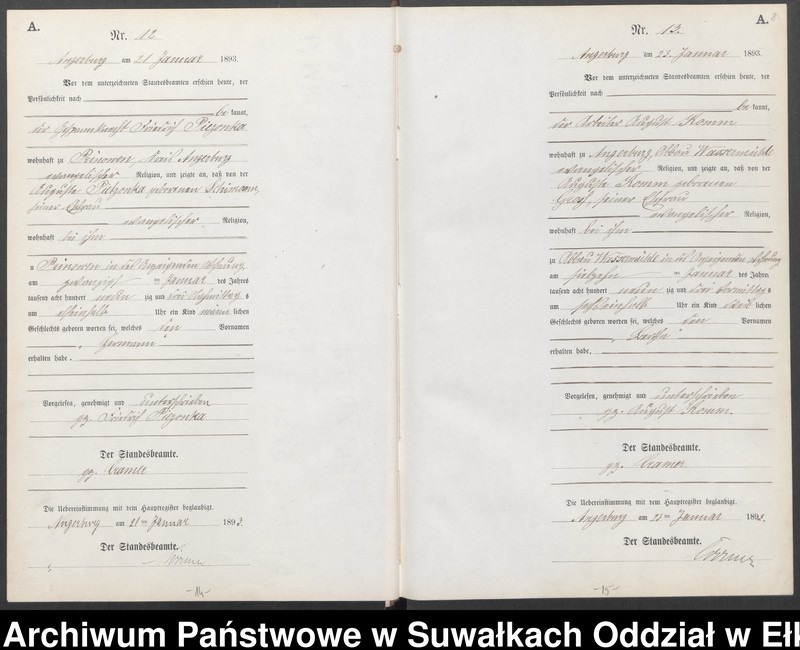 A.
Nr. 12
Angerburg am 21 Januar 1893.
Vor dem unterzeichneten Standesbeamten erschien heute, der
Persönlichkeit nach
be kannt,
der Friedrich Piezonka
wohnhaft zu Prinowen, Kreis Angerburg
evangelischer Religion, und zeigte an, daß von der
Auguste Piezonka geborenen
seiner Ehefrau
evangelischer Religion,
wohnhaft bei ihm
zu Prinowen in der
am zwanzigsten Januar des Jahres
tausend acht hundert neunzig und drei Nachmittags
um Uhr ein Kind männlichen
Geschlechts geboren worden sei, welches den Vornamen
Hermann
erhalten habe.
Vorgelesen, genehmigt und unterschrieben
gz. Friedrich Piezonka
Der Standesbeamte.
gz. Cramer
Die Uebereinstimmung mit dem Hauptregister beglaubigt.
Angerburg am 21ten Januar 1893.
Der Standesbeamte.
-14-
A.
Nr. 13.
Angerburg am 23. Januar 1893.
Vor dem unterzeichneten Standesbeamten erschien heute, der
Persönlichkeit nach
be kannt,
der Arbeiter August Komm
wohnhaft zu Angerburg, Abbau Wassermühle
evangelischer Religion, und zeigte an, daß von der
Auguste Komm geborenen
seiner Ehefrau
evangelischer Religion,
wohnhaft bei ihm
zu Abbau Wassermühle in der
am Januar des Jahres
tausend acht hundert neunzig und drei Vormittags
um Uhr ein Kind weiblichen
Geschlechts geboren worden sei, welches den Vornamen
erhalten habe.
Vorgelesen, genehmigt und unterschrieben
gz. August Komm.
Der Standesbeamte.
gz. Cramer
Die Uebereinstimmung mit dem Hauptregister beglaubigt.
Angerburg am Januar 1893.
Der Standesbeamte.
Cramer
-15-
Archiwum Państwowe w Suwałkach Oddział w Eł